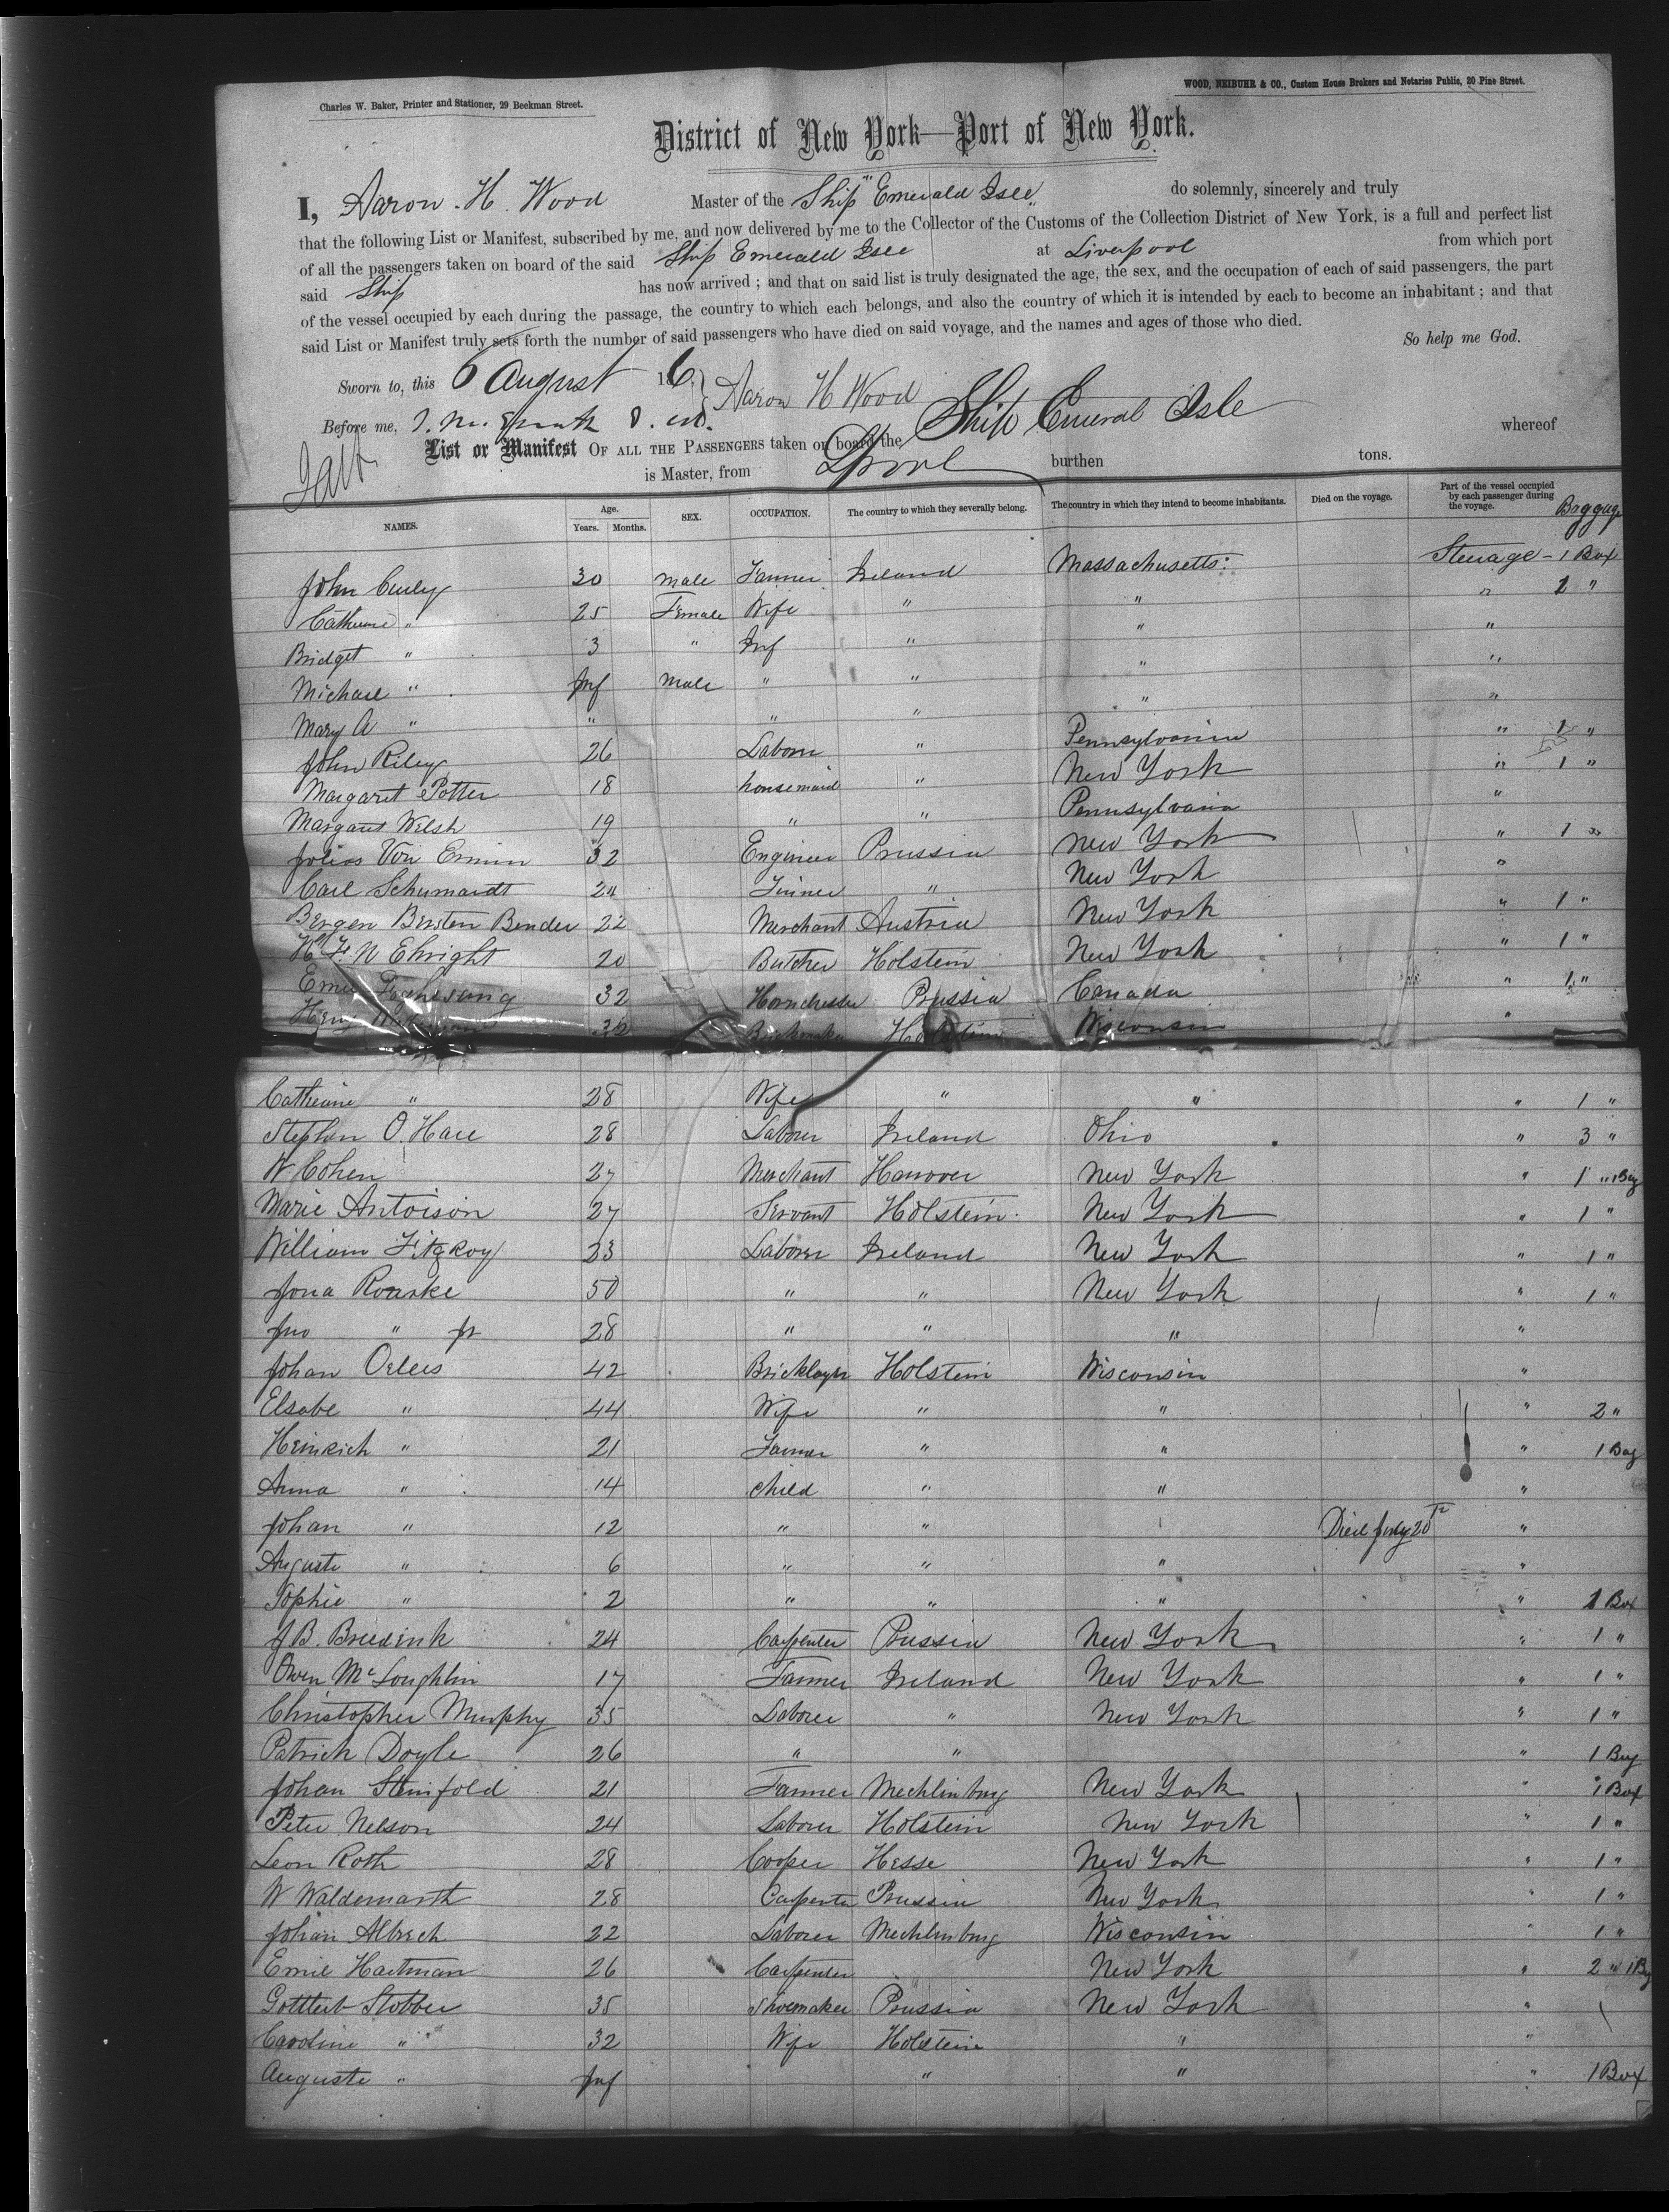 Charles W. Baker, Printer and Stationer, 29 Beekman Street.
WOOD, NEIBUHR & CO., Custom House Brokers and Notaries Public, 20 Pine Street.
District of New York—Port of New York.
I, Aaron . H. Wood Master of the Ship "Emerald Isle" do solemnly, sincerely and truly
that the following List or Manifest, subscribed by me, and now delivered by me to the Collector of the Customs of the Collection District of New York, is a full and perfect list
of all the passengers taken on board of the said Ship Emerald Isle at Liverpool from which port
said Ship has now arrived ; and that on said list is truly designated the age, the sex, and the occupation of each of said passengers, the part
of the vessel occupied by each during the passage, the country to which each belongs, and also the country of which it is intended by each to become an inhabitant ; and that
said List or Manifest truly sets forth the number of said passengers who have died on said voyage, and the names and ages of those who died.
So help me God.
Sworn to, this 6 August 186 Aaron H Wood
Before me,
List or Manifest OF ALL THE PASSENGERS taken on board the Ship Emeral Isle whereof
is Master, from Lpool burthen tons.
NAMES. Age. Years. Months. SEX. OCCUPATION. The country to which they severally belong. The country in which they intend to become inhabitants. Died on the voyage. Part of the vessel occupied by each passenger during the voyage. Baggage
John 30 male Farmer Ireland Massachusetts: Steerage - 1 Box
Catherine " 25 Female Wife " " "
Bridget " 3 " Inf " " "
Michael " Inf male " " " "
Mary A " " " " " "
John Riley 26 Laborer " Pennsylvania " 1 "
Margaret Potter 18 housemaid " New York " 1 "
Margaret Welsh 19 " " Pennsylvania "
Julios Von 32 Engineer Prussia New York " 1 "
Carl Schumardt 24 " New York "
Bergen Bersten Bender 22 Merchant Austria New York " 1 "
H F. N Ehright 20 Butcher Holstein New York " 1 "
32 Prussia Canada " 1 "
Holstein Wisconsin "
Catherine " 28 Wife " " " 1 "
Stephen O. Hare 28 Laborer Ireland Ohio " 3 "
W Cohen 27 Merchant Hanover New York " 1 " 1 Bag
Marie Antoison 27 Servant Holstein New York " 1 "
William Fitzroy 23 Laborer Ireland New York " 1 "
Jona Rourke 50 " " New York " 1 "
Jno " Jr 28 " " " "
Johan Oelers 42 Bricklayer Holstein Wisconsin "
Elsabe " 44 Wife " " " 2 "
Heinrich " 21 Farmer " " " 1 Bag
Anna " 14 child " " "
Johan " 12 " " Died July 20th "
Auguste " 6 " " " "
Sophie " 2 " " " " 1 Box
J B. Briedenk 24 Carpenter Prussia New York " 1 "
Owen McLoughlin 17 Farmer Ireland New York " 1 "
Christopher Murphy 35 Laborer " New York " 1 "
Patrick Doyle 26 " " " 1 Bag
Johan Steinfold 21 Farmer Mechlinburg New York " 1 Box
Peter Nelson 24 Laborer Holstein New York " 1 "
Leon Roth 28 Cooper Hesse New York " 1 "
W Waldemarth 28 Carpenter Prussia New York " 1 "
Johan Albrech 22 Laborer Mechlinburg Wisconsin " 1 "
Emil Hartman 26 Carpenter New York " 2 " 1 Bag
Gottlieb Stobber 35 Shoemaker Prussia New York "
Caroline " 32 Wife Holstein " "
Auguste " Inf " " " 1 Box